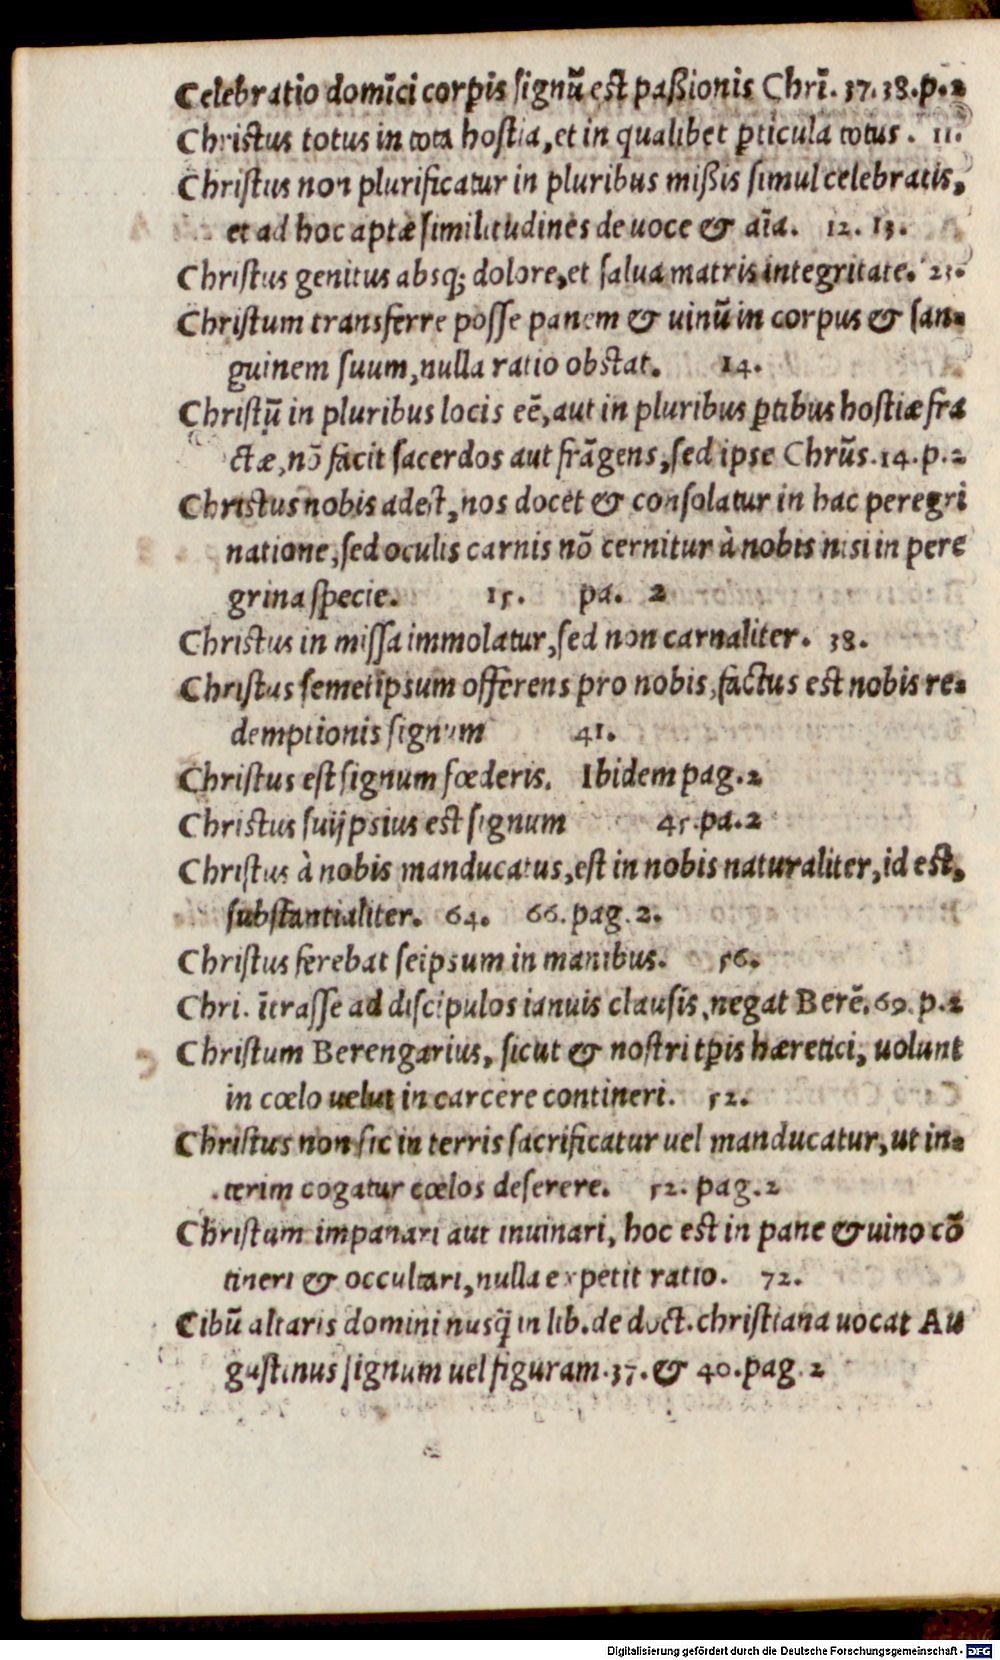 Celebratio domĩci corpis signũ est paßionis Chrĩ. 37. 38. p. 2
Christus totus in tota hostia, et in qualibet pticula totus. 11.
Christus non plurificatur in pluribus mißis simul celebratis,
et ad hoc aptæ similitudines de uoce & aĩa. 12. 13.
Christus genitus absq; dolore, et salua matris integritate. 23.
Christum transferre posse panem & uinũ in corpus & san-
guinem suum, nulla ratio obstat. 14.
Christũ in pluribus locis eẽ, aut in pluribus ptibus hostiæ fra
ctæ, nõ facit sacerdos aut frãgens, sed ipse Chrũs. 14. p. 2
Christus nobis adest, nos docet & consolatur in hac peregri
natione, sed oculis carnis nõ cernitur à nobis nisi in pere
grina specie. 15. pa. 2
Christus in missa immolatur, sed non carnaliter. 38.
Christus semetipsum offerens pro nobis, factus est nobis re-
demptionis signum 41.
Christus est signum fœderis. Ibidem pag. 2
Christus suijpsius est signum 45. pa. 2
Christus à nobis manducatus, est in nobis naturaliter, id est,
substantialiter. 64. 66. pag. 2.
Christus ferebat seipsum in manibus. 56.
Chri. ĩtrasse ad discipulos ianuis clausis, negat Berẽ. 69. p. 2
Christum Berengarius, sicut & nostri tpis hæretici, uolunt
in cœlo uelut in carcere contineri. 52.
Christus non sic in terris sacrificatur uel manducatur, ut in-
terim cogatur cœlos deserere. 52. pag. 2
Christum impanari aut inuinari, hoc est in pane & uino cõ
tineri & occultari, nulla expetit ratio. 72.
Cibũ altaris domini nusq̃ in lib. de doct. christiana uocat Au
gustinus signum uel figuram. 37. & 40. pag. 2
Digitalisierung gefördert durch die Deutsche Forschungsgemeinschaft - DFG